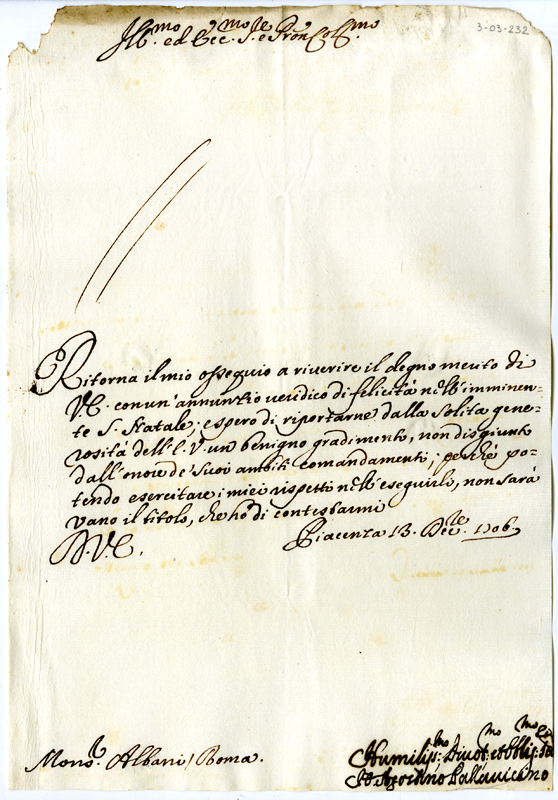 3-03-232
Ill.mo ed Ecc.mo S.re e Pron Coll.mo
Ritorna il mio ossequio a riverire il degno merito di
V.E. con un' annuntio veridico di felicità nell' imminen-
te S. Natale; e spero di riportarne dalla solita gene-
rosità dell' E.V. un benigno gradimento, non disgiunto
dall' onore de' suoi ambiti comandamenti, perché po-
tendo esercitare i miei rispetti nell' eseguirli, non sarà
vano il titolo, che ho di contestarmi
D.V.E.
Piacenza 13. Dec.bre 1706
Mons.r Albani / Roma.
Humiliss.mo Divot.mo et Oblig.mo
Pallavicino